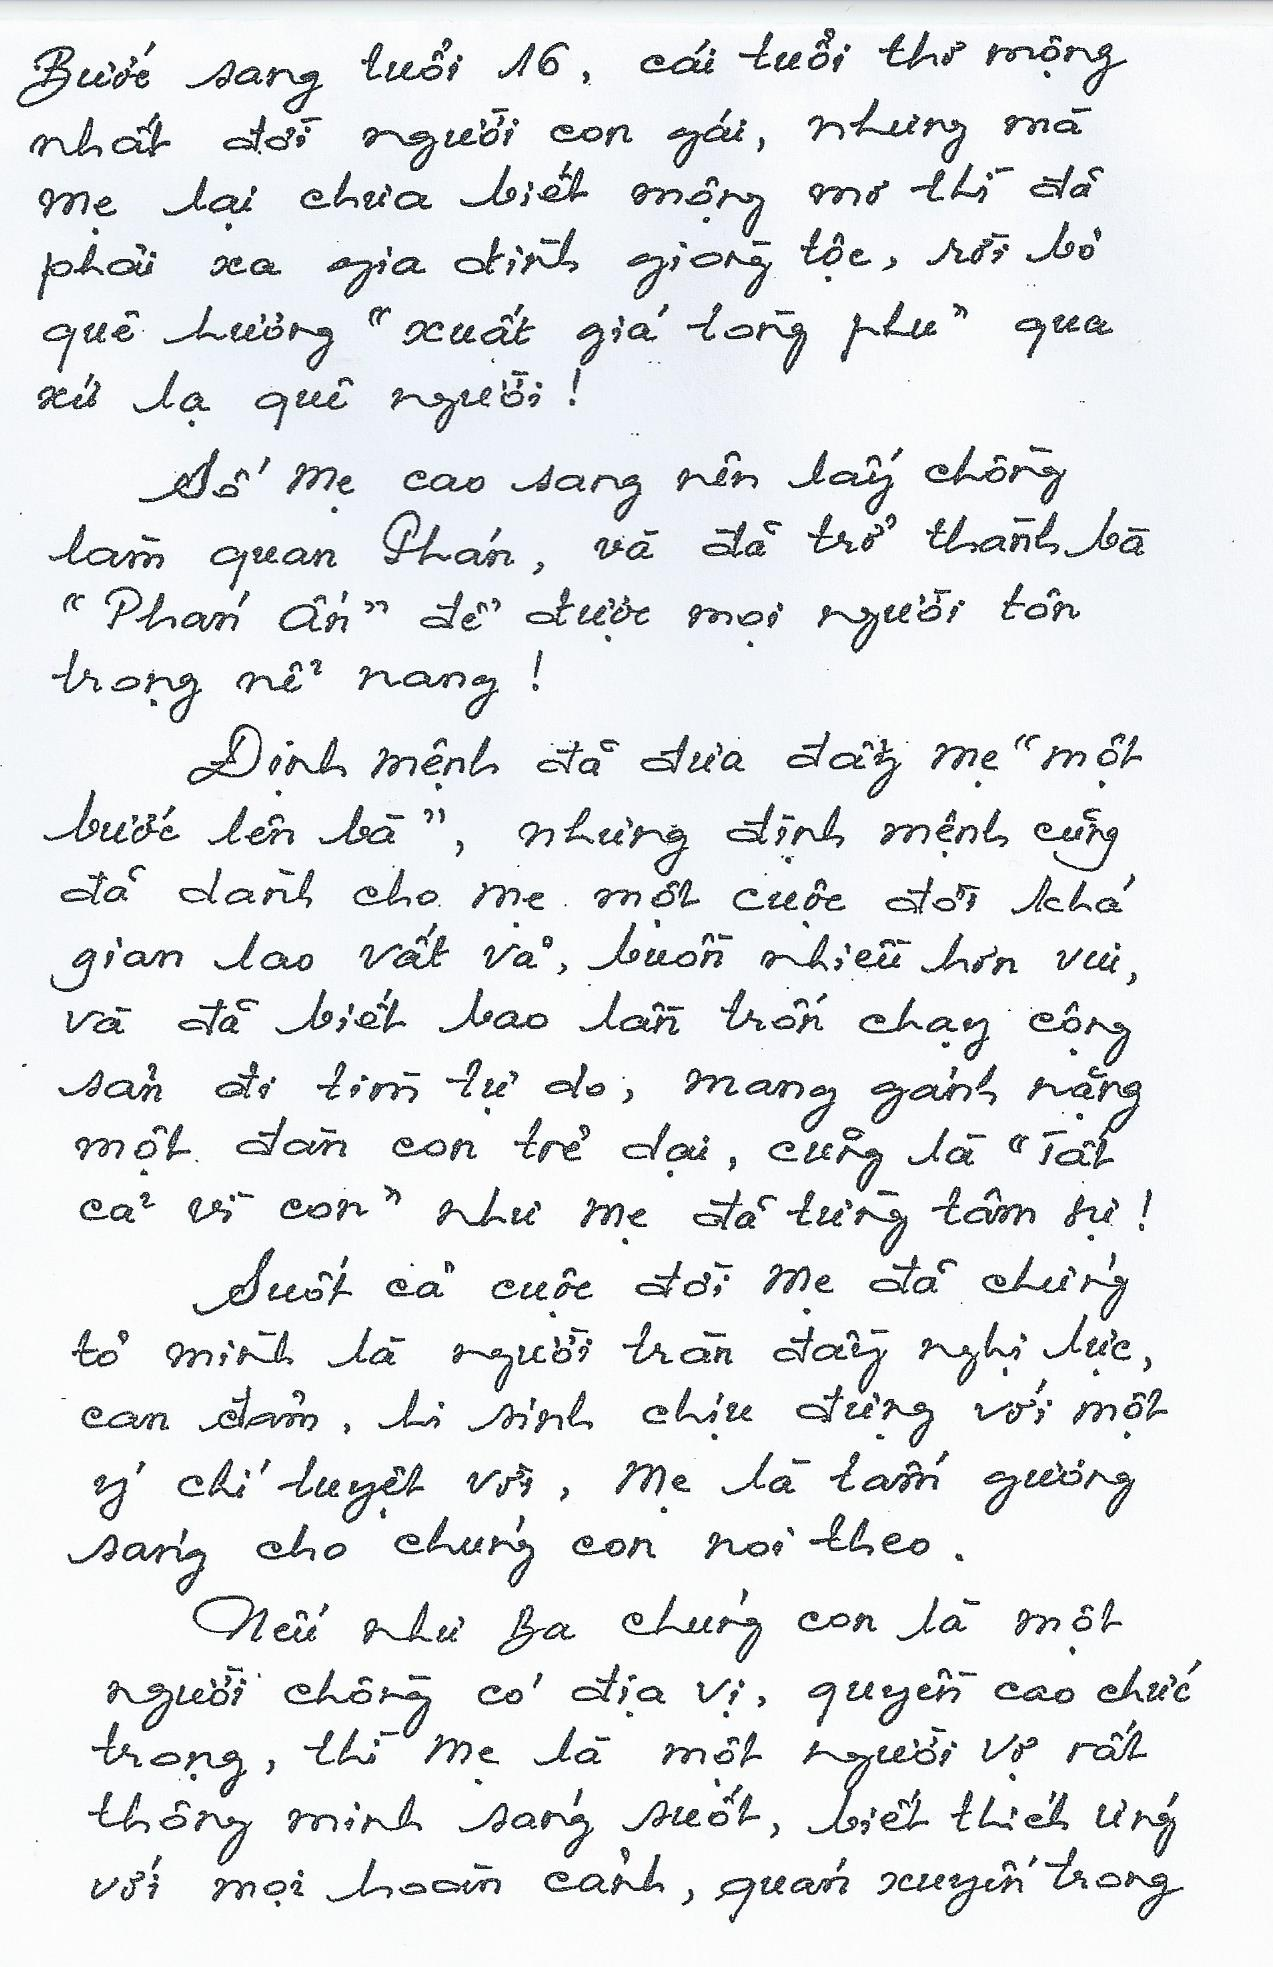 Bước sang tuổi 16, cái tuổi thơ mộng
nhất đời người con gái, nhưng mà
Mẹ lại chưa biết mộng mơ thì đã
phải xa gia đình giòng tộc, rời bỏ
quê hương "xuất giá tòng phu" qua
xứ lạ quê người!
Số Mẹ cao sang nên lấy chồng
làm quan Phán, và đã trở thành bà
"Phán Ấn" để được mọi người tôn
trọng nể nang!
Định mệnh đã đưa đẩy Mẹ "một
bước lên bà", nhưng định mệnh cũng
đã dành cho Mẹ một cuộc đời khá
gian lao vất vả, buồn nhiều hơn vui,
và đã biết bao lần trốn chạy cộng
sản đi tìm tự do, mang gánh nặng
một đàn con trẻ dại, cũng là "Tất
cả vì con" như Mẹ đã từng tâm sự!
Suốt cả cuộc đời Mẹ đã chứng
tỏ mình là người tràn đầy nghị lực,
can đảm, hi sinh chịu đựng với một
ý chí tuyệt vời, Mẹ là tấm gương
sáng cho chúng con noi theo.
Nếu như Ba chúng con là một
người chồng có địa vị, quyền cao chức
trọng, thì Mẹ là một người vợ rất
thông minh sáng suốt, biết thích ứng
với mọi hoàn cảnh, quán xuyến trong